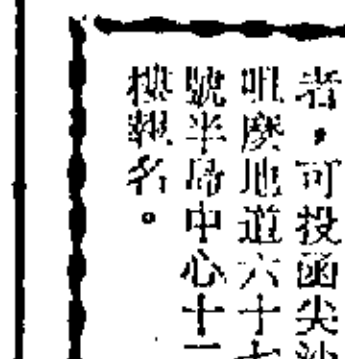 者，可投函尖沙
咀麼地道六十七
號半島中心十二
樓報名。